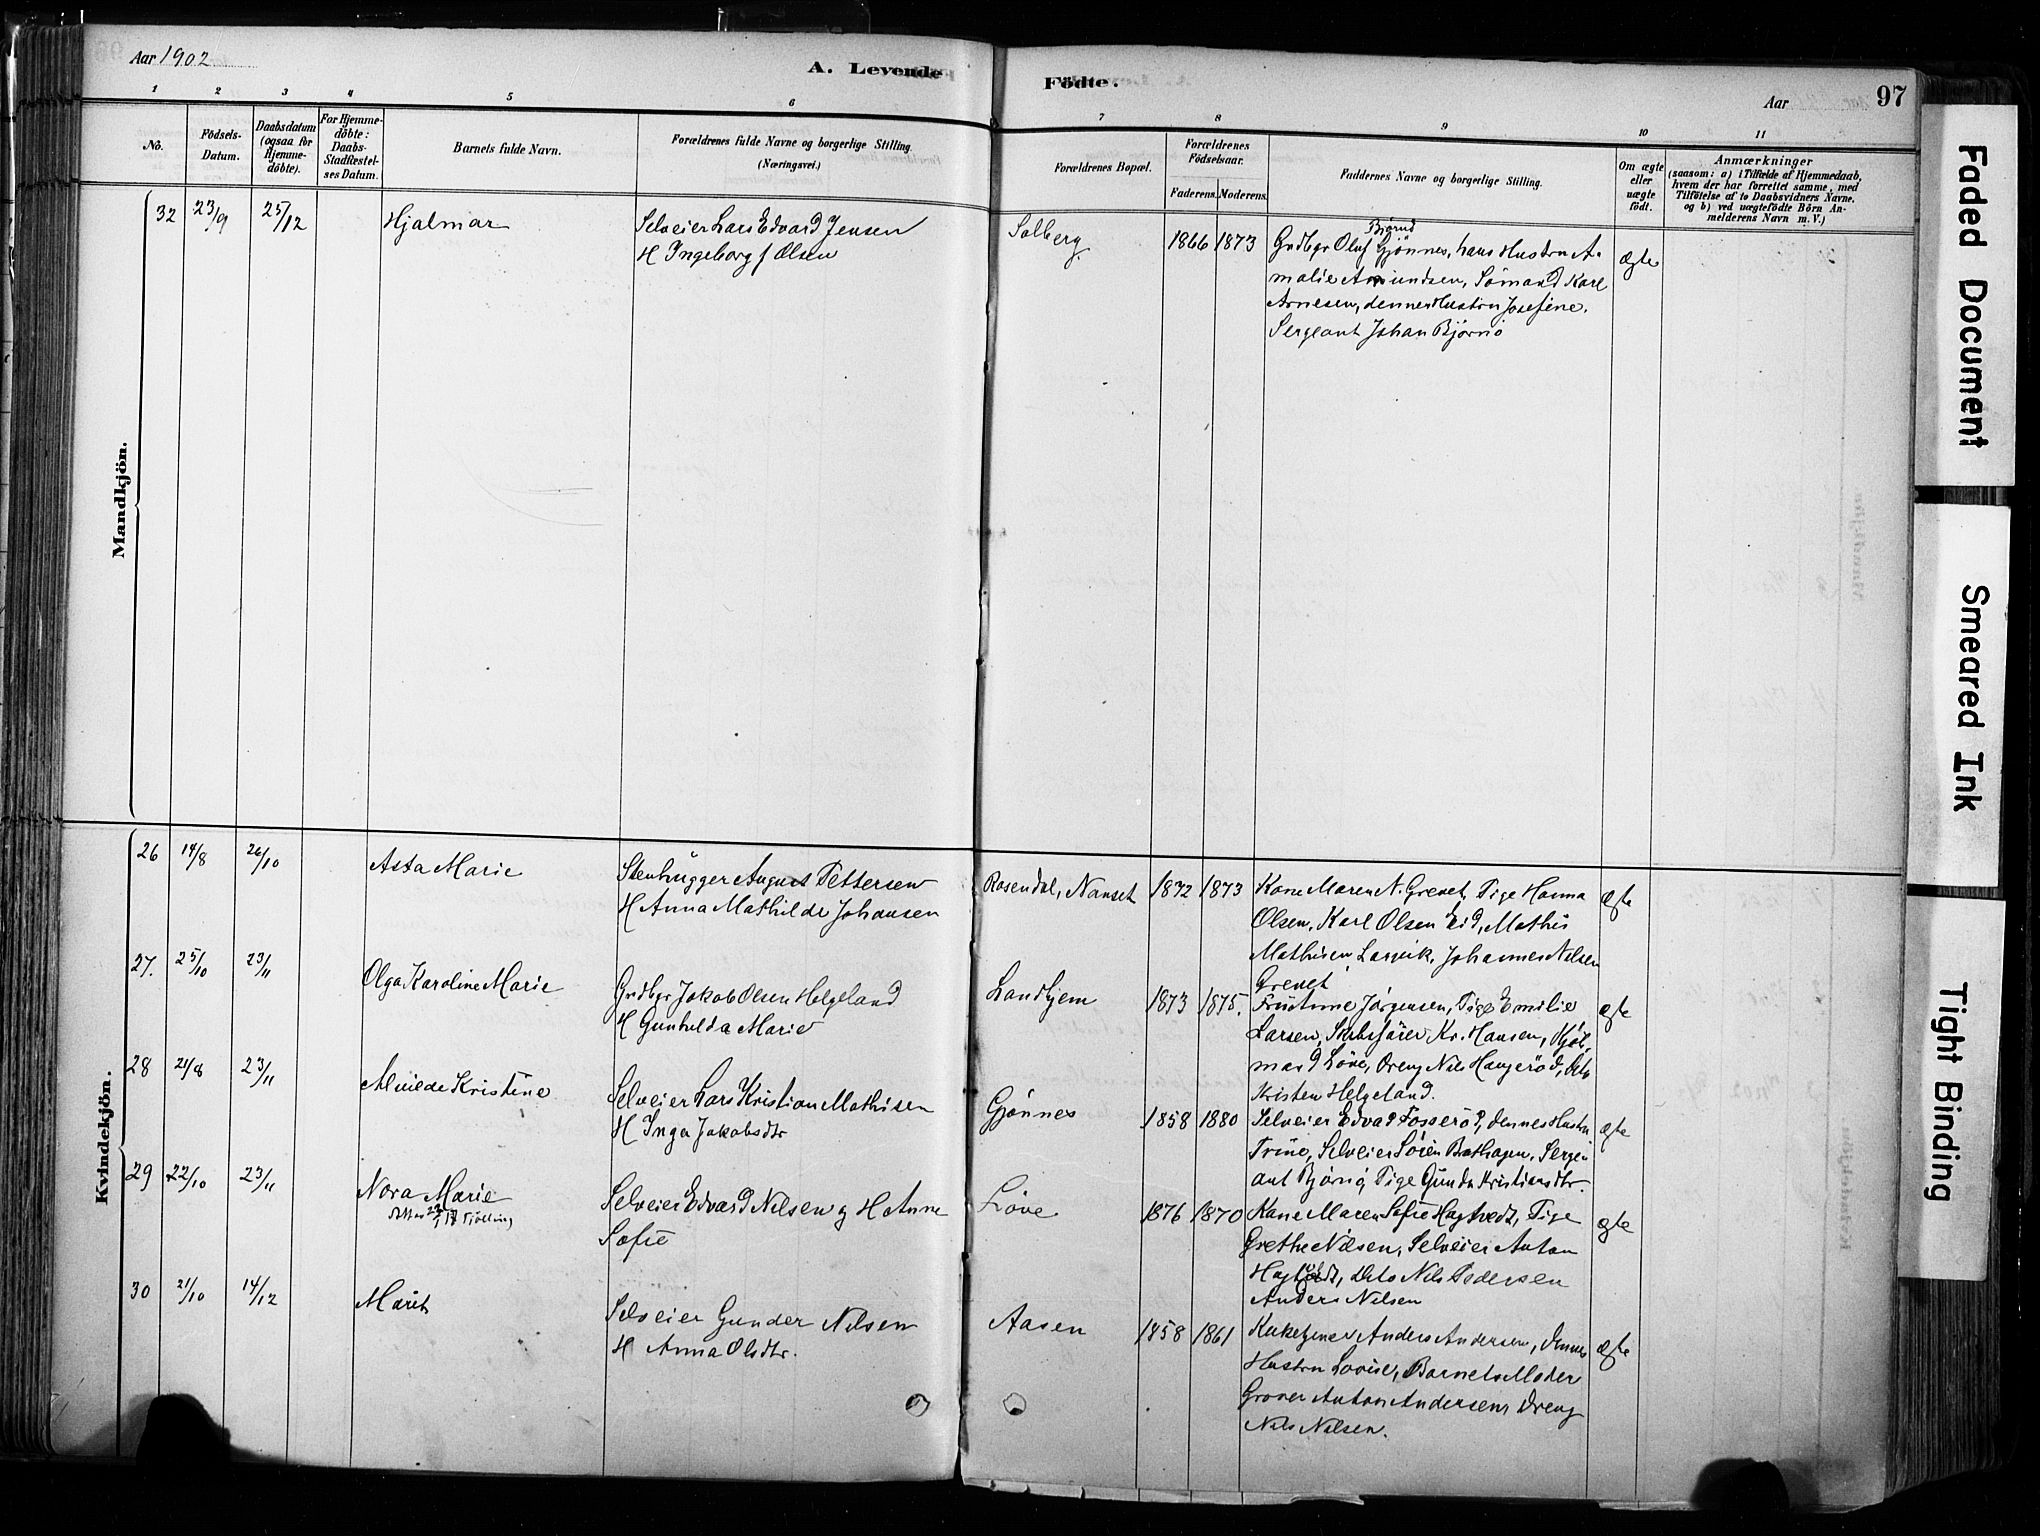 Aar 1902
A. Levende
Födte.
Aar
97
1 2 3 4 5 6 7 8 9 10 11
No.
Födsels-
Datum.
Daabsdatum
(ogsaa for
Hjemme-
døbte).
For Hjemme-
døbte:
Daabs-
Stadfæstel-
ses Datum.
Barnets fulde Navn.
Forældrenes fulde Navne og borgerlige Stilling.
(Næringsvei.)
Forældrenes Bopæl.
Forældrenes
Födselsaar.
Faderens. Moderens.
Faddernes Navne og borgerlige Stilling.
Om ægte
eller
uægte
födt.
Anmærkninger
(saasom: a) i Tilfælde af Hjemmedaab,
hvem der har forrettet samme, med
Tilföielse af to Daabsvidners Navne.
og b) ved uægtefödte Börn An-
melderens Navn m. V.)
Mandkjön.
32 23/9 25/12 Hjalmar
Selveier Lars Edvard Jensen
H Ingeborg f Olsen
Solberg 1866 1873
Bjørnd
Grdbgr Oluf Gjønnes, hans Hustru A-
malie Amundsen, Sømand Karl
Arnesen, dennes Hustru Josefine.
Sergeant Johan Bjørnø
ægte
Kvindekjön.
26 14/8 26/10 Asta Marie
Stenhugger August Pettersen
H Anna Mathilde Johansen
Rosendal, Nanset 1872 1873
Kone Maren N. Grevet, Pige Hanna
Olsen, Karl Olsen Eid, Mathis
Mathisen Larvik, Johannes Nilsen
Grevet
ægte
27. 25/10 23/11 Olga Karoline Marie
Grdbgr Jakob Olsen Helgeland
H Gunhilda Marie
Landhjem 1873 1875.
Jørgensen, Pige Emilie
Larsen, Skibsfører Kr. Hansen,
mand Løve, Dreng Nils Haugerød,
Kristen Helgeland.
ægte
28 21/8 23/11 Alvilde Kristine
Selveier Lars Kristian Mathisen
H Inga Jakobsdtr
Gjønnes 1858 1880
Selveier Edvard Fosserød, dennes Hustru
Trine, Selveier Søren Bathagen, Serge-
ant Bjørnø, Pige Gunda Kristiansdtr.
ægte
29 22/10 23/11 Nora Marie
Tjølling
Selveier Edvard Nilsen og H Anne
Sofie
Løve 1876 1870
Kone Maren Sofie Hagtvedt, Pige
Grethe Nilsen, Selveier Anton
Hagtvedt, Dito Nils Pedersen
Anders Nilsen
ægte
30 21/10 14/12 Marit
Selveier Gunder Nilsen
H Anna Olsdtr.
Aasen 1858 1861
Kirketjener Anders Andersen, dennes
Hustru Lovise, Barnets Moder
Graver Anton Andersen, Dreng
Nils Nilsen.
ægte
Faded Document
Smeared Ink
Tight Binding